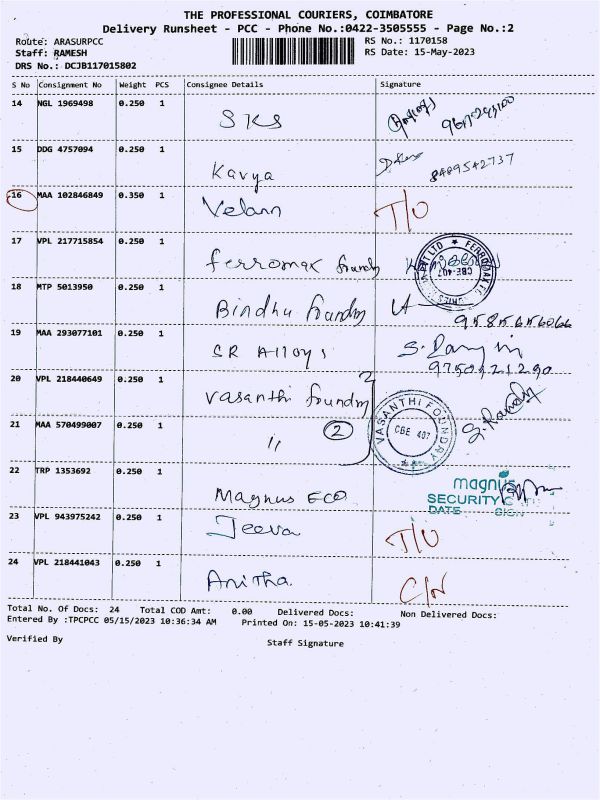 THE PROFESSIONAL COURIERS, COIMBATORE
Delivery Runsheet - PCC - Phone No.:0422-3505555 - Page No.:2
Route: ARASURPCC RS No.: 1170158
Staff: RAMESH RS Date: 15-May-2023
DRS No.: DCJB117015802
S No Consignment No Weight PCS Consignee Details Signature
14 NGL 1969498 0.250 1 SKS
15 DDG 4757094 0.250 1 Kavya 8489542737
16 MAA 102846849 0.350 1 Velann T/O
17 VPL 217715854 0.250 1 ferromax foundry
CBE-407
18 MTP 5013950 0.250 1 Bindhu foundry
19 MAA 293077101 0.250 1 SR Alloys
20 VPL 218440649 0.250 1 vasanthi foundry
VASANTHI FOUNDRY
CBE 407
21 MAA 570499007 0.250 1 " 2
22 TRP 1353692 0.250 1 Magnus ECO
magnus
SECURITY
DATE SIGN
23 VPL 943975242 0.250 1 Jeeva T/O
24 VPL 218441043 0.250 1 Anitha. C/N
Total No. Of Docs: 24 Total COD Amt: 0.00 Delivered Docs: Non Delivered Docs:
Entered By :TPCPCC 05/15/2023 10:36:34 AM Printed On: 15-05-2023 10:41:39
Verified By Staff Signature